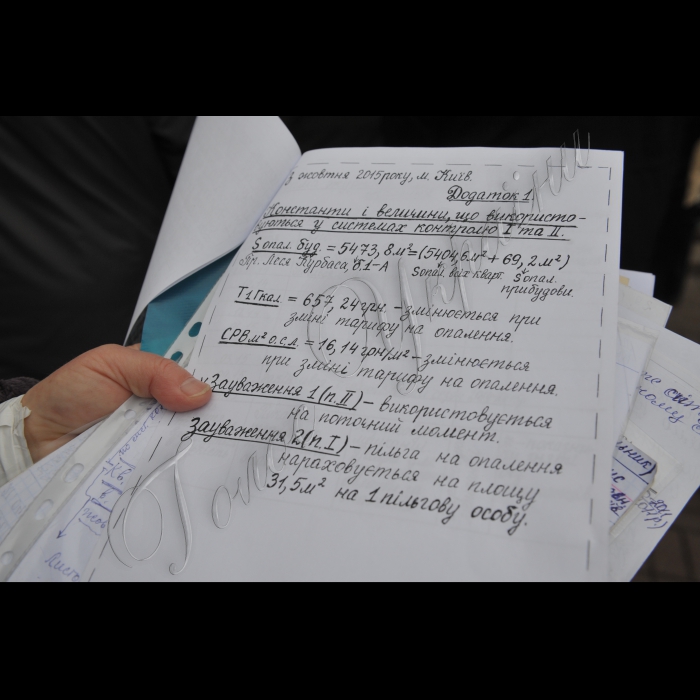 з жовтня 2015 року, м. Київ.
Додаток 1
Константи і величини, що використо-
вуються у системах контролю I та II.
S опал. буд. = 5473,8м²=(5404,6м² + 69,2м²)
пр. Леся Курбаса, б.1-А Sопал. вих кварт. Sопал. прибудови.
Т1Гкал = 657,24грн. – змінюється при
зміні тарифу на опалення.
СРВм² о.с.п. = 16,14грн/м² – змінюється
при зміні тарифу на опалення.
Зауваження 1(п.II) – використовується
на поточний момент.
Зауваження 2(п.I) – пільга на опалення
нараховується на площу
31,5м² на 1 пільгову особу.